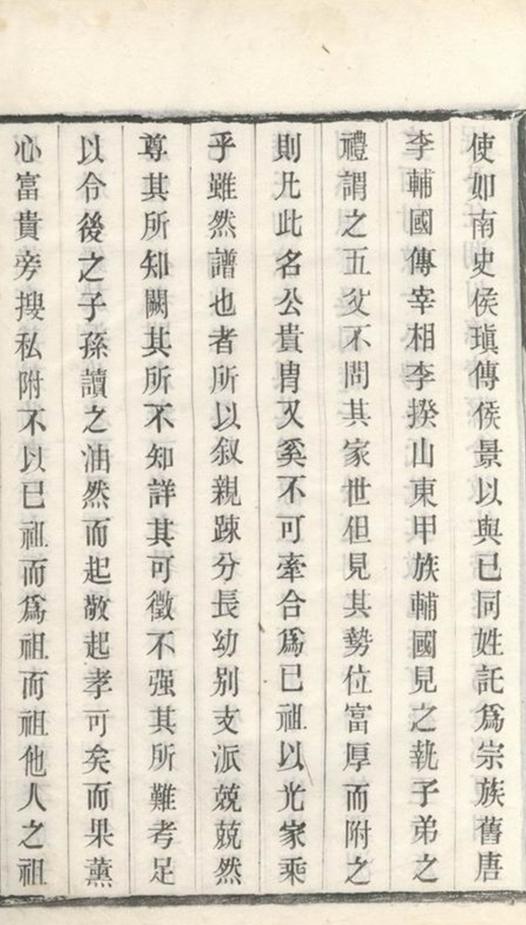 使如南史侯瑱傳侯景以與已同姓託爲宗族舊唐
李輔國傳宰相李揆山東甲族輔國見之執子弟之
禮謂之五父不問其家世但見其勢位富厚而附之
則凡此名公貴胄又奚不可牽合爲已祖以光家乘
乎雖然譜也者所以叙親踈分長幼别支派兢兢然
尊其所知闕其所不知詳其可徵不强其所難考足
以令後之子孫讀之油然而起敬起孝可矣而果薰
心富貴旁搜私附不以已祖而爲祖而祖他人之祖